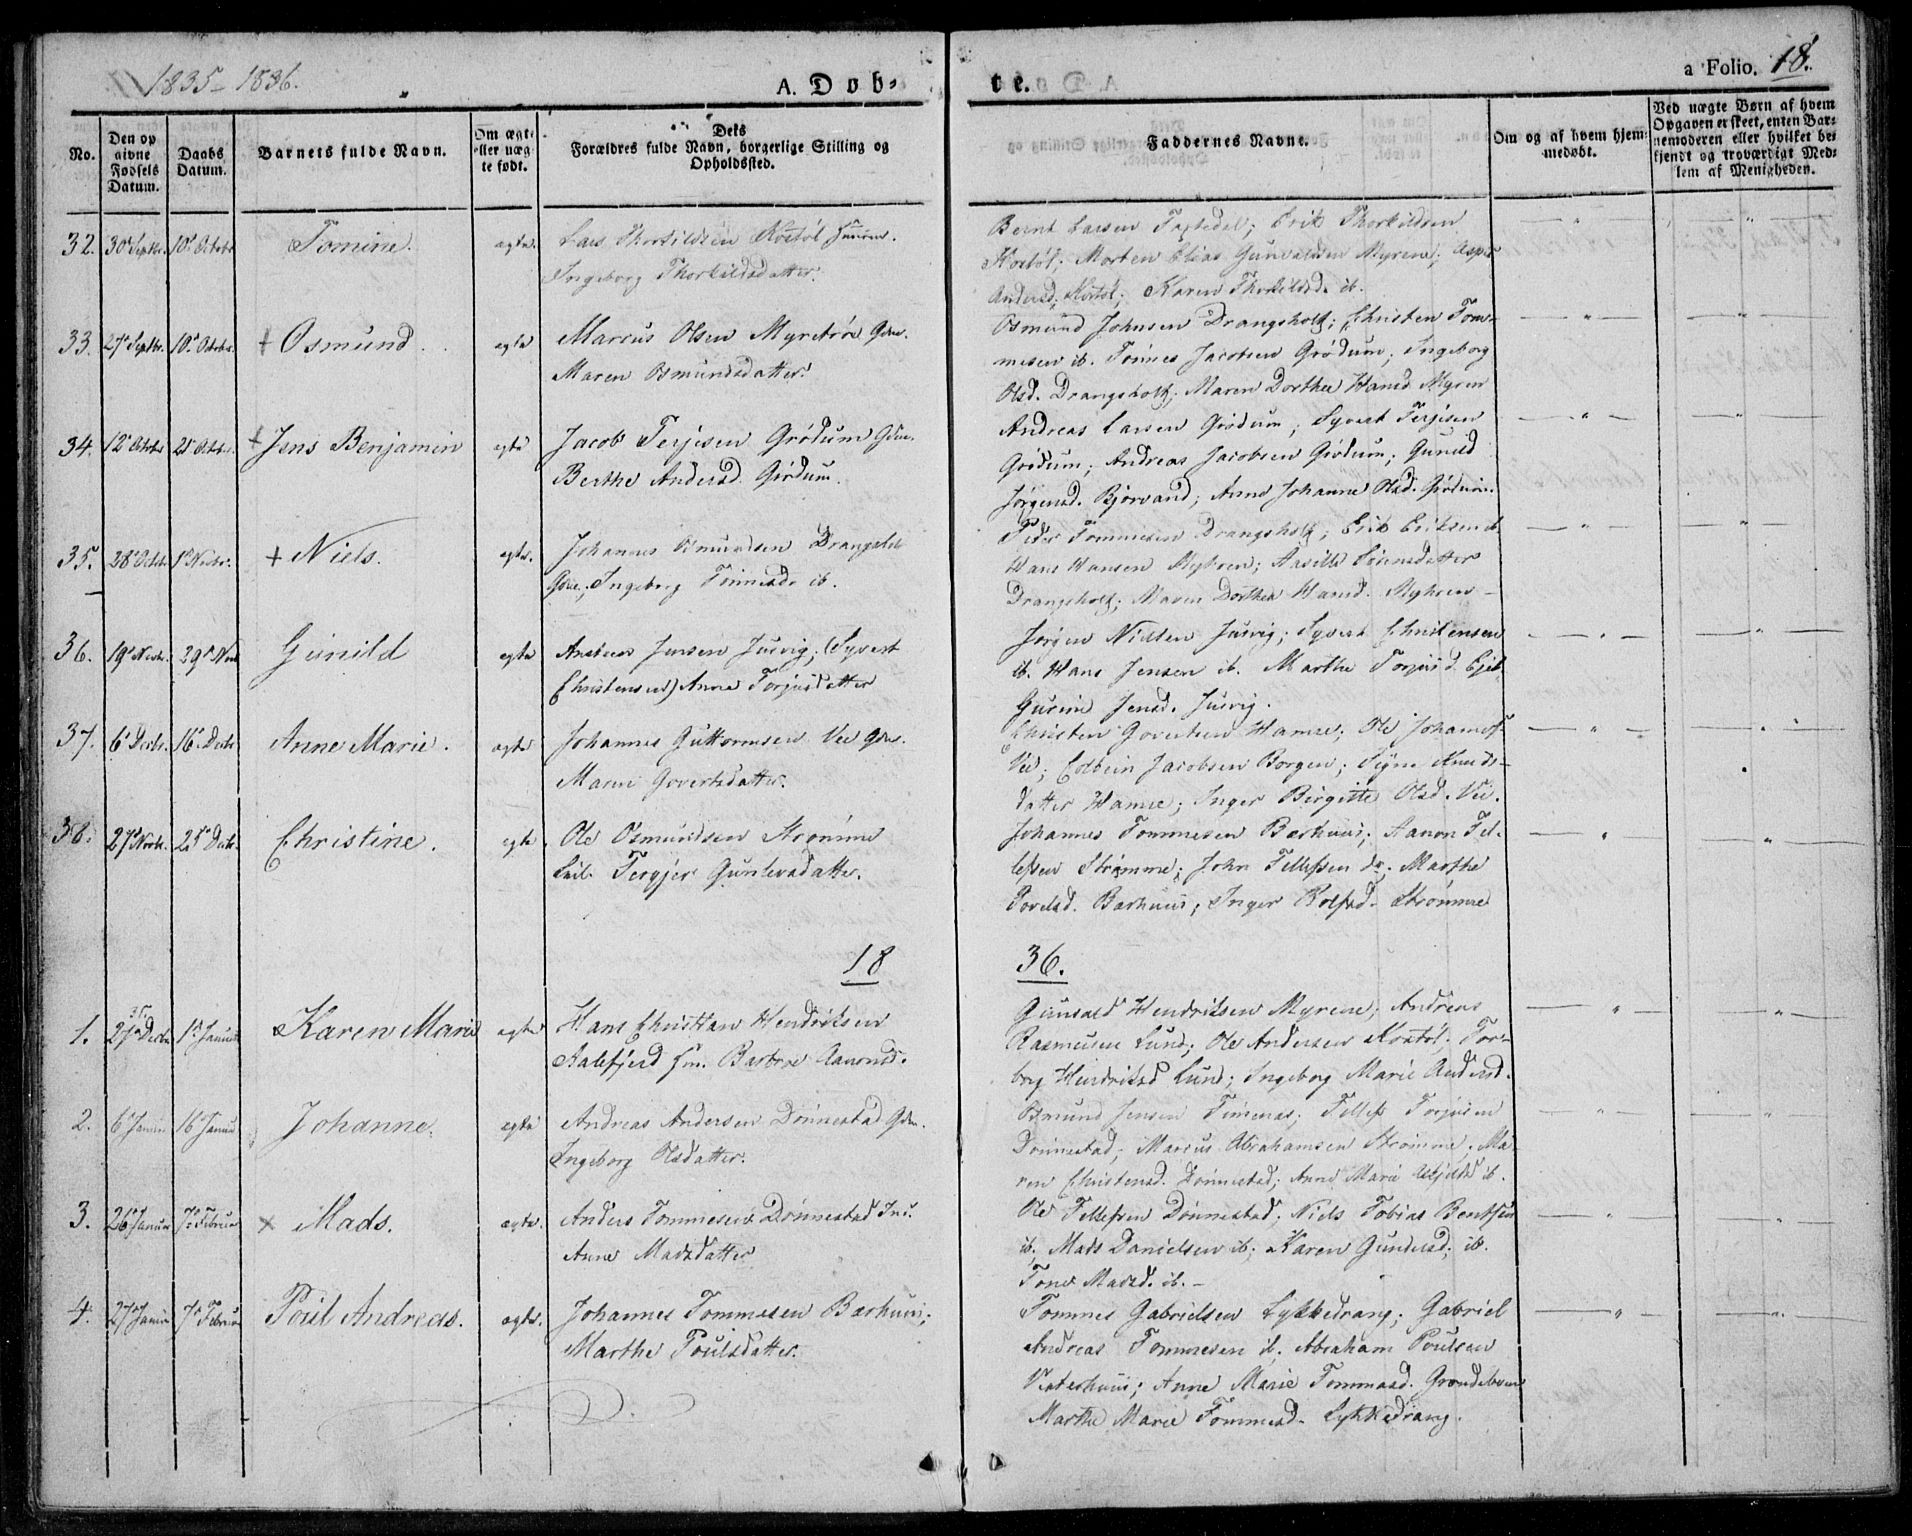 1835-1836.
A. Døb-
te.
a Folio. 18.
No.
Den op
givne
Fødsels
Datum.
Daabs
Datum.
Barnets fulde Navn.
Om ægte
eller uæg
te født.
Dets
Forældres fulde Navn, borgerlige Stilling og
Opholdssted.
Faddernes Navne.
Om og af hvem hjem-
medøbt.
Ved uægte Børn af hvem
Opgaven er skeet, enten Bar-
nemoderen eller hvilket be-
kjendt og troværdigt Med-
lem af Menigheden.
32. 30 Septbr. 10 Octobr Tomine. ægte. Lars Thorkildsen Kostøl
Ingeborg Thorkildsdatter.
Bernt Larsen; Erik Thorkildsen
Kostøl; Morten Elias Gunvaldsen Myrene;
Andersd. Kostøl; Karen Thorkildsd. ib.
33. 27 Septbr. 10 Octobr. + Osmund. ægte Marcus Olsen Gdm.
Maren Osmundsdatter.
Osmund Johnsen Drangsholt; Christen Tom-
mesen ib. Tønnes Jacobsen Grødum; Ingeborg
Olsd. Drangsholt; Maren Dorthea Hansd. Myren
34. 12 Octobr 25 Octobr. + Jens Benjamin ægte Jacob Terjesen Grødum Gdm.
Berthe Andersd. Grødum.
Andreas Larsen Grødum; Syvert Terjesen
Grødum; Andreas Jacobsen Grødum; Gunild
Jørgensd. Bjorvand; Anne Johanne Olsd. Grødum.
35. 28 Octobr. 1 Novbr. + Niels. ægte. Johannes Osmundsen Drangsholt
Gdm., Ingeborg Tønnesd. ib.
Peder Tommesen Drangsholt; Erik Eriksen ib.
Hans Hansen Myhren; Aasille Sørensdatter
Drangsholt; Maren Dorthea Hansd. Myhren
36. 19 Novbr. 29 Nov Gunild ægte Andreas Jensen Justvig; (Syvert
Christensen) Anne Torjusdatter
Jørgen Nielsen Justvig; Syvert Christensen
ib. Hans Jensen ib. Marthe Torjusd.
Gurine Jensd. Justvig.
37. 6 Decbr. 16 Decbr Anne Marie. ægte Johannes Guttormsen Vee Gdm.
Maren Govertsdatter.
Christen Govertsen Hamre; Ole Johannes.
Vee; Jacobsen Borgen; Signe Knuds-
datter Hamre; Inger Birgitte Olsd. Vee.
38. 27 Novbr. 25 Decbr. Christine. ægte Ole Osmundsen Strømme
Terjer Gunlevsdatter.
Johannes Tommesen Barhuus; Aanon Tel-
lefsen Strømme; John Tellefsen do. Marthe
Povelsd. Barhuus; Inger Strømme
18 36.
1. 27 Decbr 1 Januar Karen Marie ægte Hans Christian Hendriksen
Aalefjerd Aanonsd.
Gunvald Hendriksen Myrene; Andreas
Rasmusen Lund; Ole Andersen Kostøl; Tor-
borg Hendriksd Lund; Ingeborg Marie Andersd.
2. 6 Januar 16 Januar Johanne. ægte Andreas Andersen Dønnestad Gdm.
Ingeborg Olsdatter.
Osmund Jensen Timenes; Tellef Torjusen
Dønnestad; Marcus Abrahamsen Strømme; Ma-
ren Christensd. Dønnestad; Anne Marie ib.
3. 26 Januar 7 Februar × Mads. ægte. Anders Tommesen Dønnestad
Anne Madsdatter
Ole Tellefsen Dønnestad; Niels Tobias Bentsen
ib, Mads Danielsen ib; Karen Gundersd; ib.
Tone Madsd. ib. -
4. 27 Januar 7 Februar Poul Andreas. ægte. Johannes Tommesen Barhuus;
Marthe Poulsdatter.
Tommes Gabrielsen Lykkedrang; Gabriel
Andreas Tommesen ib. Abraham Poulsen
Vesterhuus; Anne Marie Tommesd.
Marthe Marie Tommesd. Lykkedrang.